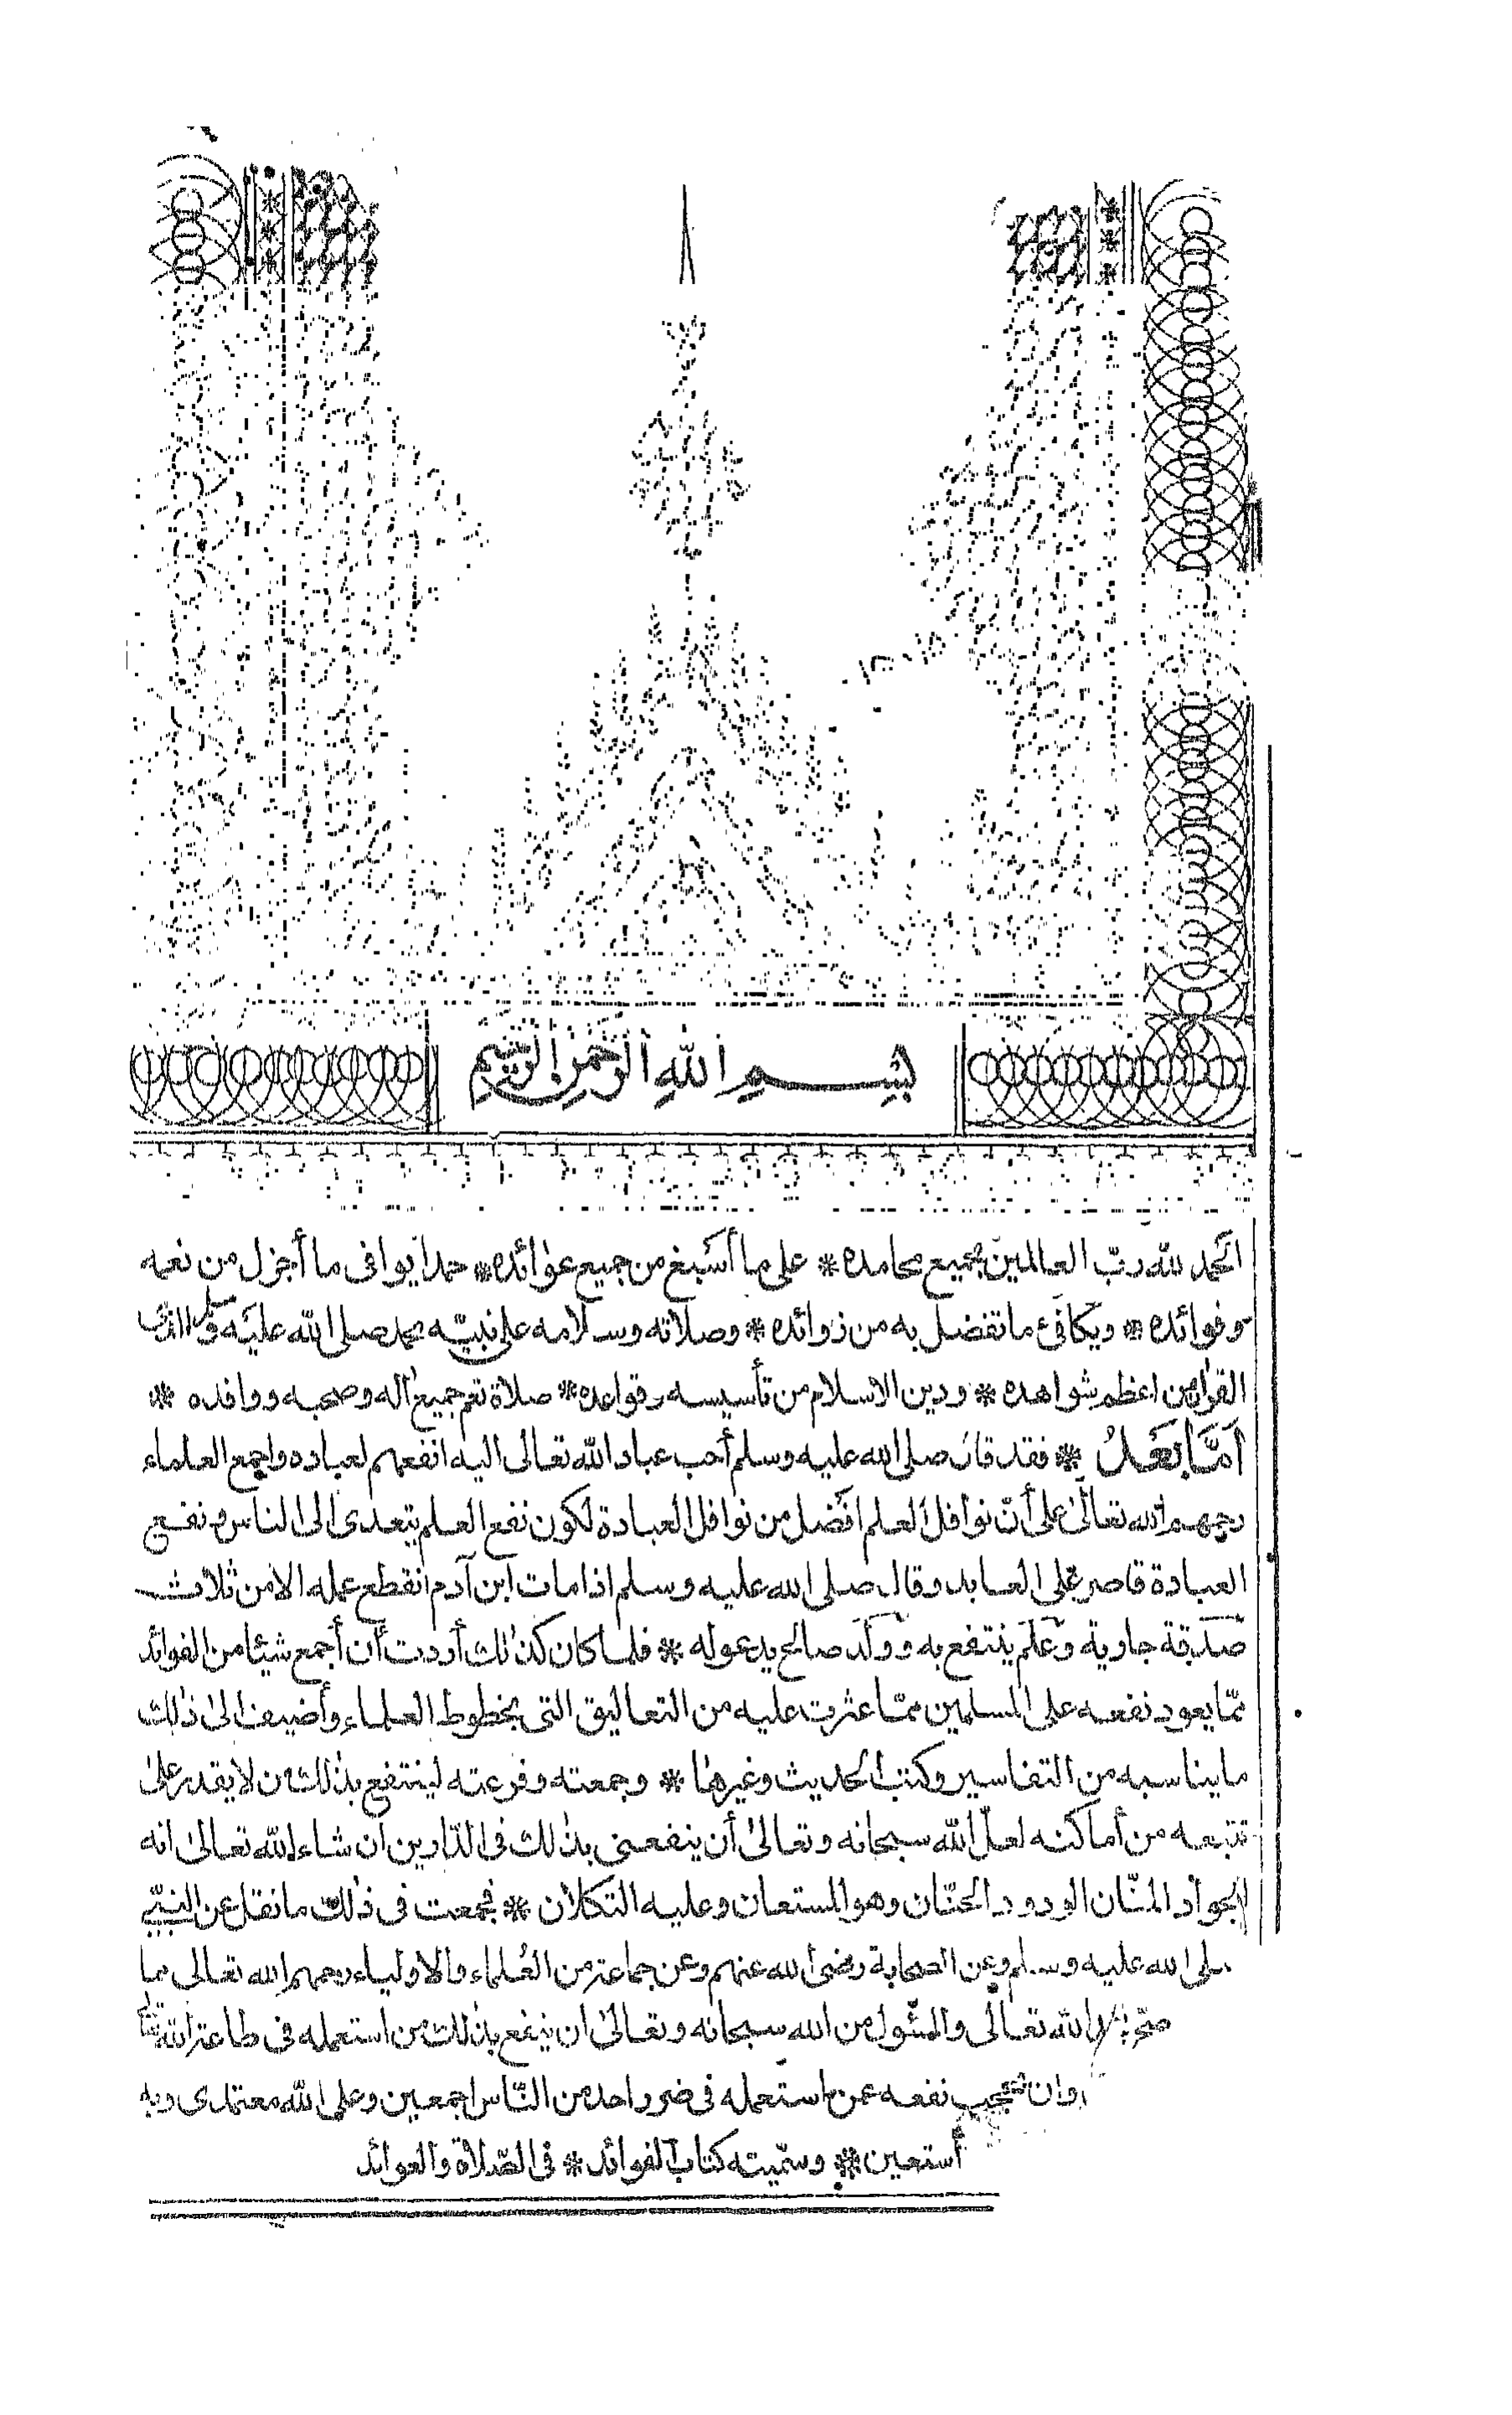 بِسْمِ اللهِ الرَّحْمٰنِ الرَّحِيْمِ
الحمد لله ربّ العالمين بجميع محامده * على ما أسبغ من جميع عوائده * حمدا يوافى ما أجزل من نعمه
وفوائده * ويكافئ ما تفضل به من زوائده * وصلاته وسلامه على نبيّه محمد صلى الله عليه وسلم الذى
القرآن من اعظم شواهده * ودين الاسلام من تأسيسه وقواعده * صلاة تعم جميع آله وصحبه ووافده *
أمّا بعد * فقد قال صلى الله عليه وسلم أحب عباد الله تعالى اليه انفعهم لعباده واجمع العلماء
رحمهم الله تعالى على أنّ نوافل العلم افضل من نوافل العبادة لكون نفع العلم يتعدى الى الناس ونفع
العبادة قاصر على العابد وقال صلى الله عليه وسلم اذا مات ابن آدم انقطع عمله الا من ثلاث
صدقة جارية وعلم ينتفع به وولد صالح يدعو له * فلما كان كذلك أردت أن أجمع شيئا من الفوائد
ممّا يعود نفعه على المسلمين ممّا عثرت عليه من التعاليق التى بخطوط العلماء وأضيف الى ذلك
ما يناسبه من التفاسير وكتب الحديث وغيرها * وجمعته وفرعته لينتفع بذلك من لا يقدر على
تتبعه من أماكنه لعلّ الله سبحانه وتعالى أن ينفعنى بذلك فى الدّارين ان شاء الله تعالى انه
الجواد المنّان الودود الحنّان وهو المستعان وعليه التكلان * فجمعت فى ذلك ما نقل عن النبىّ
صلى الله عليه وسلم وعن الصحابة رضى الله عنهم وعن جماعة من العُلماء والاولياء رحمهم الله تعالى مما
الله تعالى والمسّول من الله سبحانه وتعالى ان ينفع بذلك من استعمله فى طاعة الله
وان نفعه عمن استعمله فى ضر واحد من النّاس اجمعين وعلى الله معتمدى وبه
أستعين * وسمّيته كتاب الفوائد * فى الصّلاة والعوائد